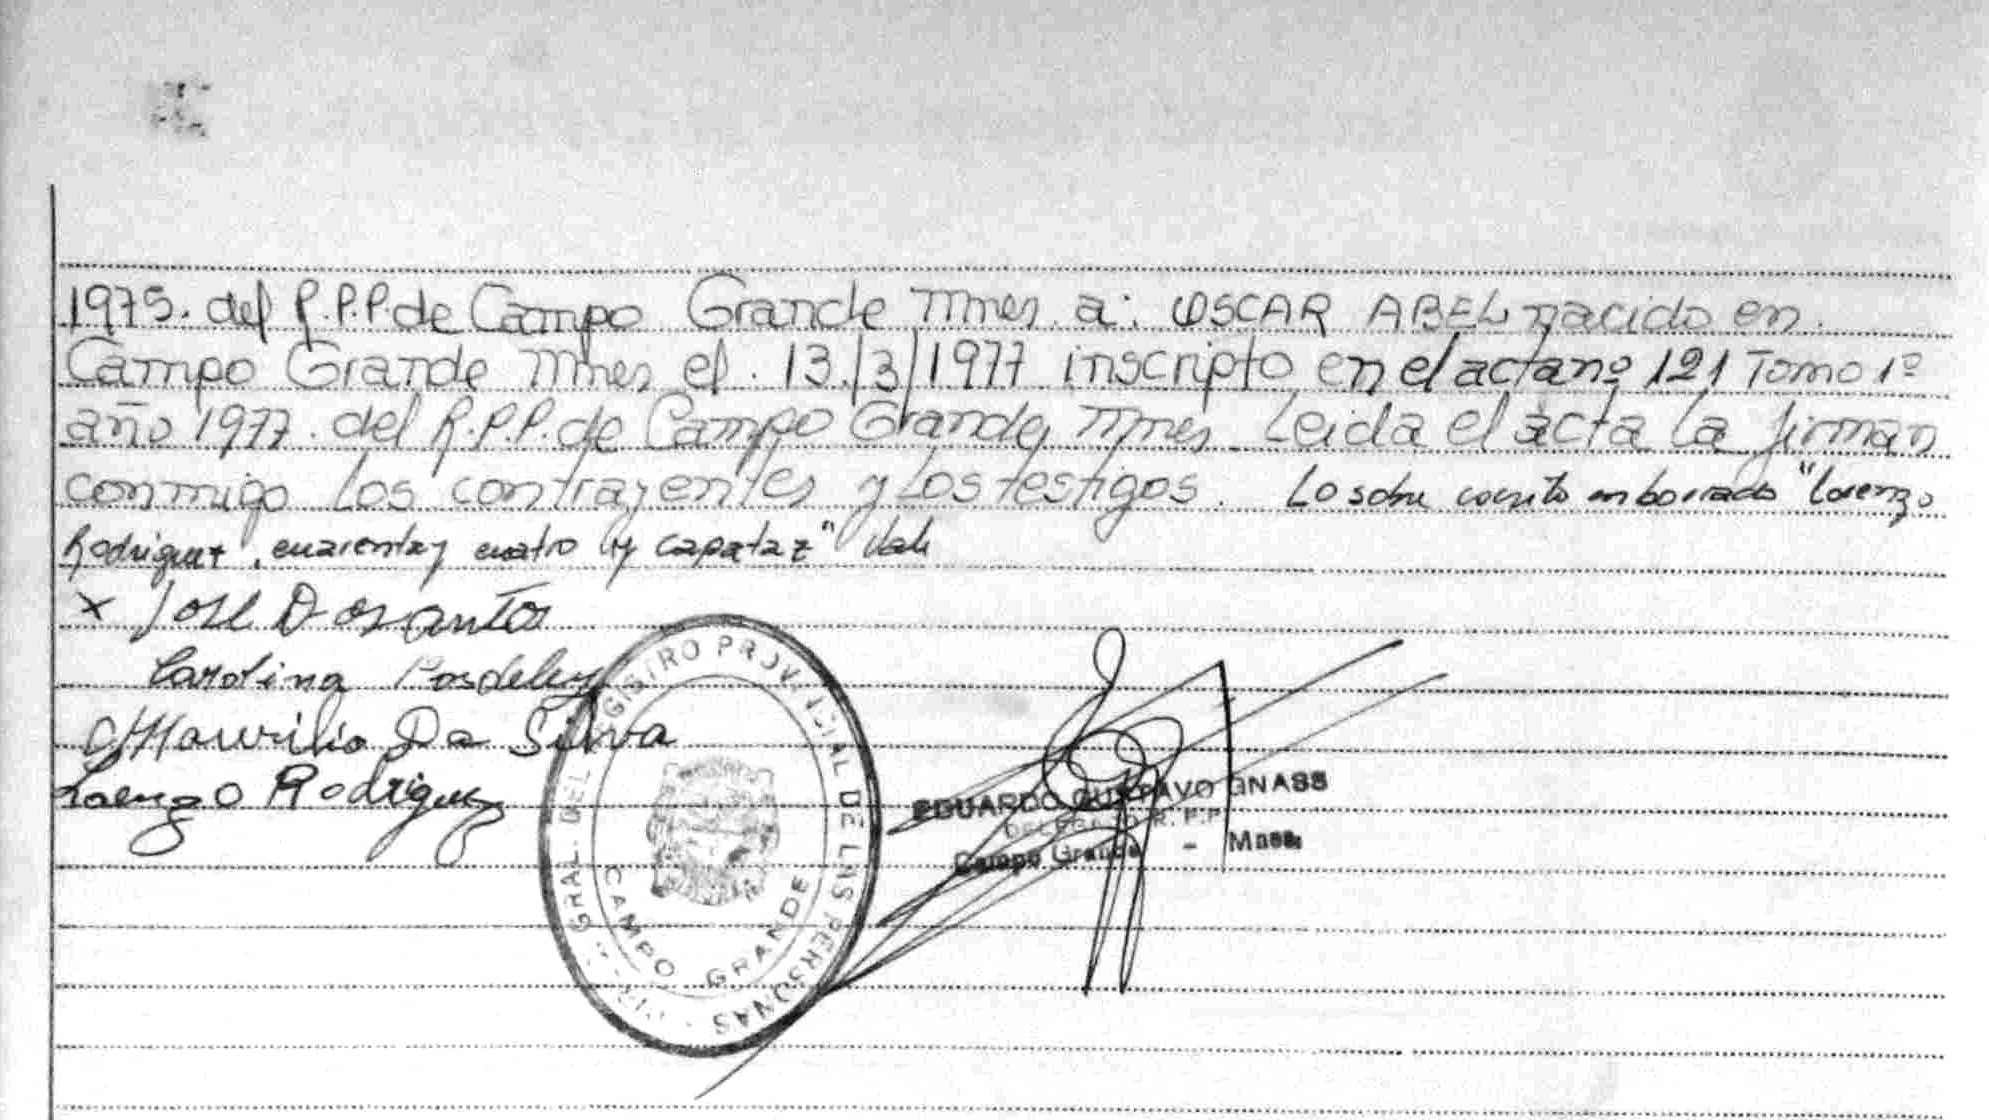 1975. del R.P.P de Campo Grande Mnes a: OSCAR ABEL nacido en
Campo Grande Mnes el. 13/3/1977 inscripto en el acta nº 121 Tomo 1º
año 1977. del R.P.P. de Campo Grande, Mnes. Leida el acta la firman
conmigo los contrayentes y los testigos. Lo sobre escrito en borrado "Lorenzo
Rodriguez, cuarenta y cuatro y capataz" Vale
x Jose Dosanto
Carolina
Maurilio Da Silva
Lorenzo Rodriguez
GRAL. DEL REGISTRO PROVINCIAL DE LAS PERSONAS
CAMPO GRANDE
EDUARDO GUSTAVO GNASS
DELEGADO R. P. P.
Campo Grande - Mnes.